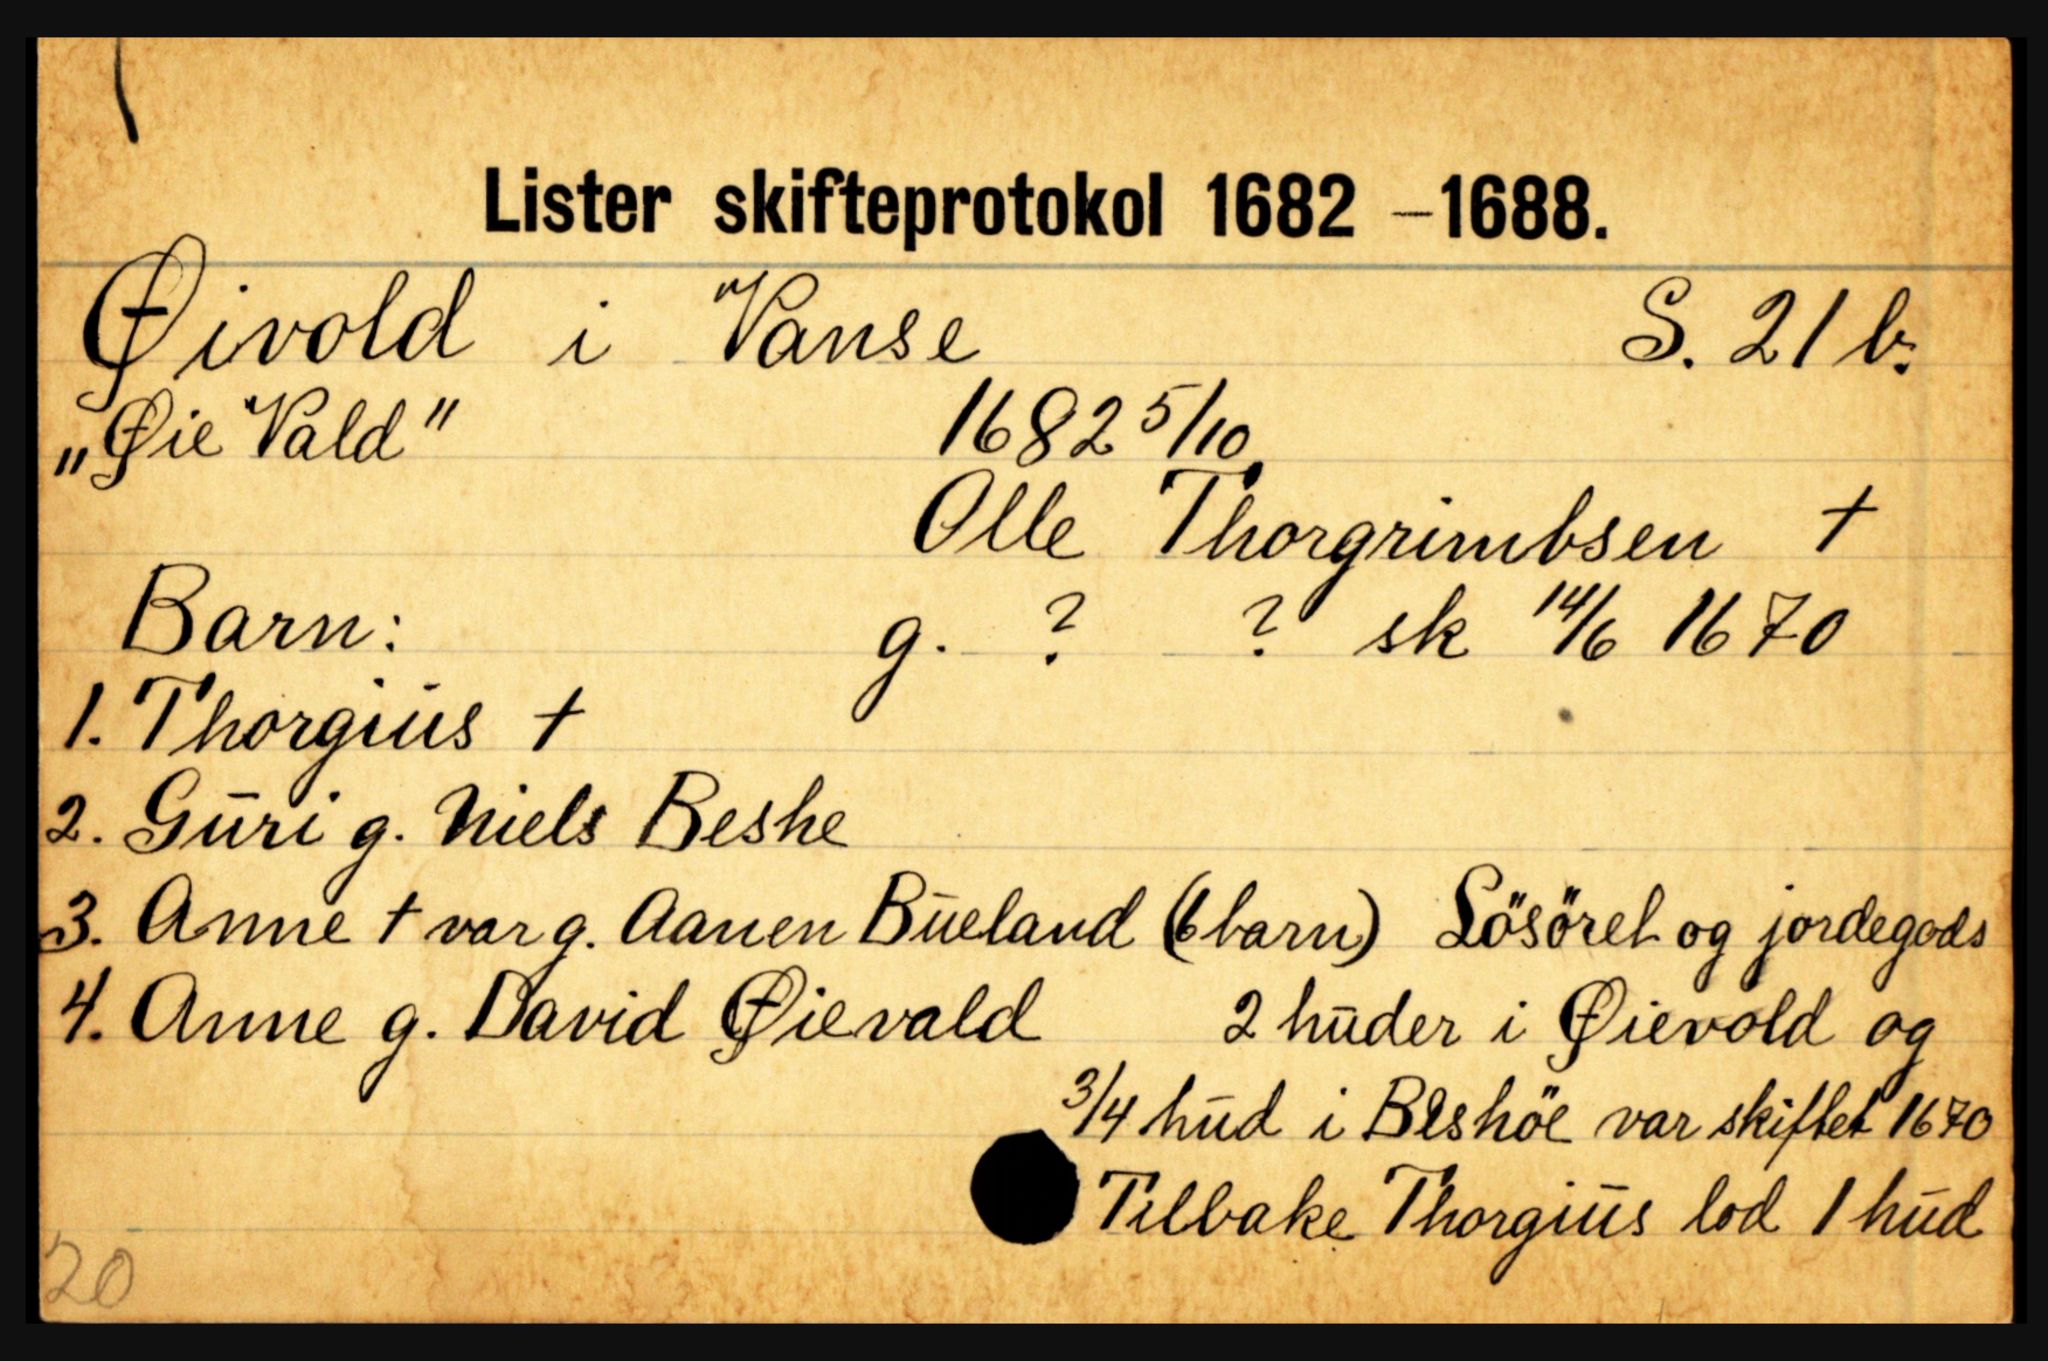 Lister skifteprotokol 1682 – 1688.
Øivold i Vanse S. 21 b.
„Øie Vald" 1682 5/10
Olle Thorgrimbsen †
Barn: g. ? ? sk 14/6 1670
1. Thorgius †
2. Guri g. Niels Beshe
3. Anne † var g. Aanen Bueland (6 barn) Lösöret og jordegods
4. Anne g. David Øievald 2 huder i Øievold og
3/4 hud i Beshöe var skiftet 1670
Tilbake Thorgius lod 1 hud
20